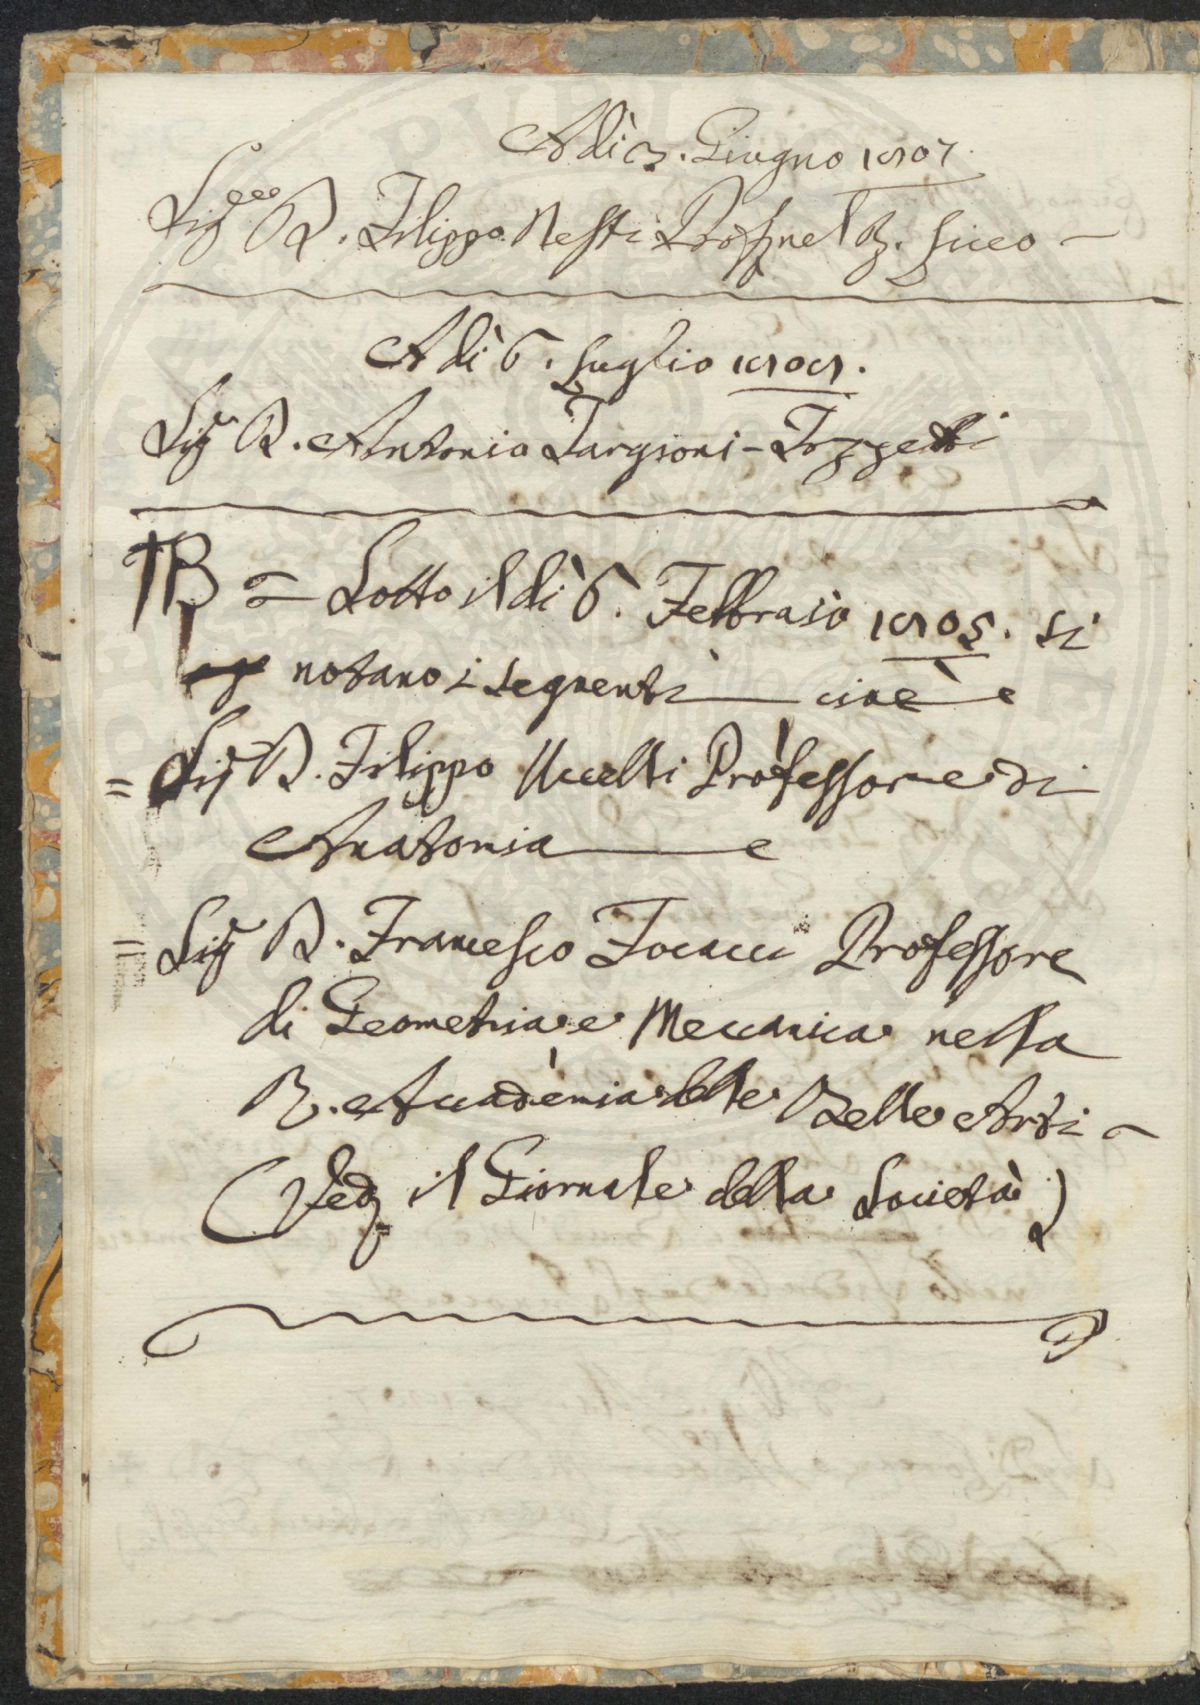 Adì 3. Giugno 1807.
Sig.re D. Filippo Nesti Prof. nel R. Liceo
Adì 6. Luglio 1808.
Sig.r D. Antonio Targioni-Tozzetti
NB = Sotto il dì 6. Febbraio 1805. si
notano i seguenti cioè
= Sig.r D. Filippo Uccelli Professore di
Anatomia
= Sig.r D. Francesco Focacci Professore
di Geometria e Meccanica nella
R. Accademia delle Belle Arti
(Ved. il Giornale della Società)